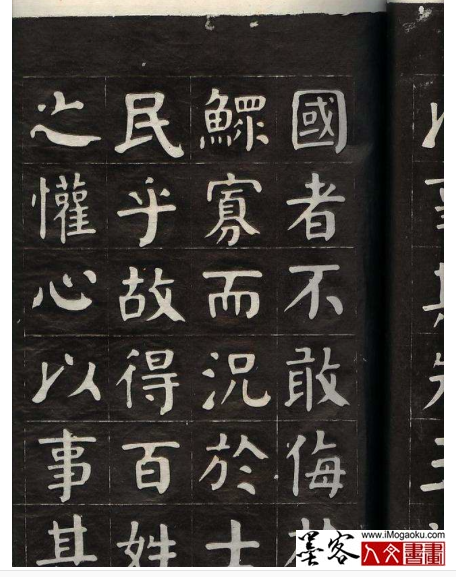 國者不敢侮
鰥寡而況於士
民乎故得百姓
之懽心以事其
墨客
www.iMogaoku.com